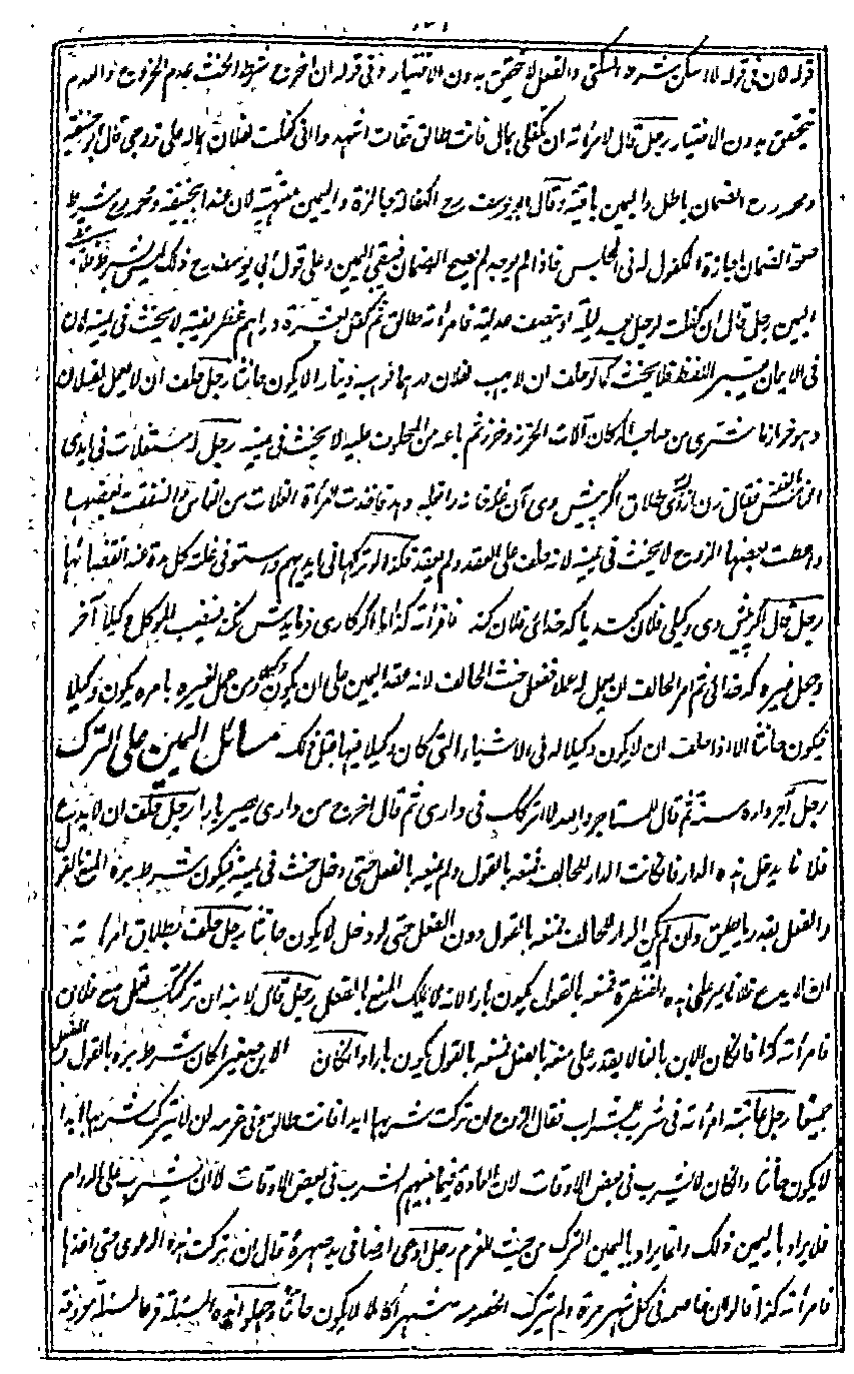 قوله لان في قوله لا اسكن شرط السكنى والفعل لا يتحقق بدون الاختيار وفي قوله ان اخرج شرط الحنث عدم الخروج والعدم
يتحقق بدون الاختيار رجل قال لامرأته ان تكفلي بمال فانت طالق فقالت اشهدوا اني كفلت لفلان بماله على زوجي قال ابو حنيفة
ومحمد رح الضمان باطل واليمين باقية وقال ابو يوسف رح الكفالة جائزة واليمين منتهية لان عند ابي حنيفة ومحمد رح شرط
صحة الضمان اجازة المكفول له في المجلس فاذا لم يوجد لم يصح الضمان فيبقى اليمين وعلى قول ابي يوسف رح ذلك ليس بشرط
اليمين رجل قال ان كفلت لرجل بعدلية او بنصف عدلية فامرأته طالق ثم كفل بعشرة دراهم غطريفية لا يحنث في يمينه لان
في الايمان يعتبر اللفظ فلا يحنث كما لو حلف ان لا يهب لفلان درهما فوهبه دينارا لا يكون حانثا رجل حلف ان لا يعمل لفلان
وهو خراز فاشترى من صاحب الدكان آلات الخرز وخرز ثم باعه من المحلوف عليه لا يحنث في يمينه رجل له مستغلات في ايدي
فقال زن طلاق اگر پیش دی آن غله خانه را وقد قعدت امرأة الغلات من الناس وانفقت بعضها
واعطت بعضها الزوج لا يحنث في يمينه لانه حلف على العقد ولم يعقد وكذا لو تركها في ايديهم واستوفى غلة كل مدة عند انقضائها
رجل قال اگر پیش وی وکیلی فلان کند یا کدخدائی فلان کند فامرأته كذا یا اگر کاری فرمایدش بکند فنصب الموكل وكيلا آخر
وجعل غيره كدخدائی ثم امر الحالف ان يعمل له عملا ففعل حنث الحالف لانه عقد اليمين على ان يكون وكيله ومن عمل لغيره بامره يكون وكيلا
فيكون حانثا الا اذا حلف ان لا يكون وكيلا له في الاشياء التي كان وكيلا فيها قبل ذلك مسائل اليمين على الترك
رجل آجر داره سنة ثم قال للمستاجر والله لا اتركك في داري ثم قال اخرج من داري يصير بارا رجل حلف ان لا يدع
فلانا يدخل هذه الدار فان كانت الدار للحالف فمنعه بالقول ولم يمنعه بالفعل حتى دخل حنث في يمينه فيكون شرط بره المنع بالقول
والفعل بقدر ما يطيق وان لم يكن الدار للحالف فمنعه بالقول دون الفعل حتى لو دخل لا يكون حانثا رجل حلف بطلاق امرأته
ان لا يدع فلانا يمر على هذه القنطرة فمنعه بالقول يكون بارا لانه لا يملك المنع بالفعل رجل قال لابنه ان تركتك تعمل مع فلان
فامرأته كذا فان كان الابن بالغا لا يقدر على منعه بالفعل فمنعه بالقول يكون بارا وان كان الابن صغيرا كان شرط بره بالقول والفعل
جميعا رجل عاتبته امرأته في شرب الشراب فقال الزوج ان تركت شربها ابدا فانت طالق وفي عزمه ان لا يترك شربها ابدا
لا يكون حانثا وان كان لا يشرب في بعض الاوقات لان العادة فيما بينهم الشرب في بعض الاوقات لا ان يشرب على الدوام
فلا يراد باليمين ذلك وانما يراد باليمين الترك من حيث العزم رجل ادعى ارضا في يد صهره فقال ان تركت هذه الدعوى حتى آخذها
فامرأته كذا قالوا ان خاصمه في كل شهر مرة ولم يترك الخصومة شهرا كاملا لا يكون حانثا وجعلوا هذه المسئلة فرعا لمسئلة معروفة